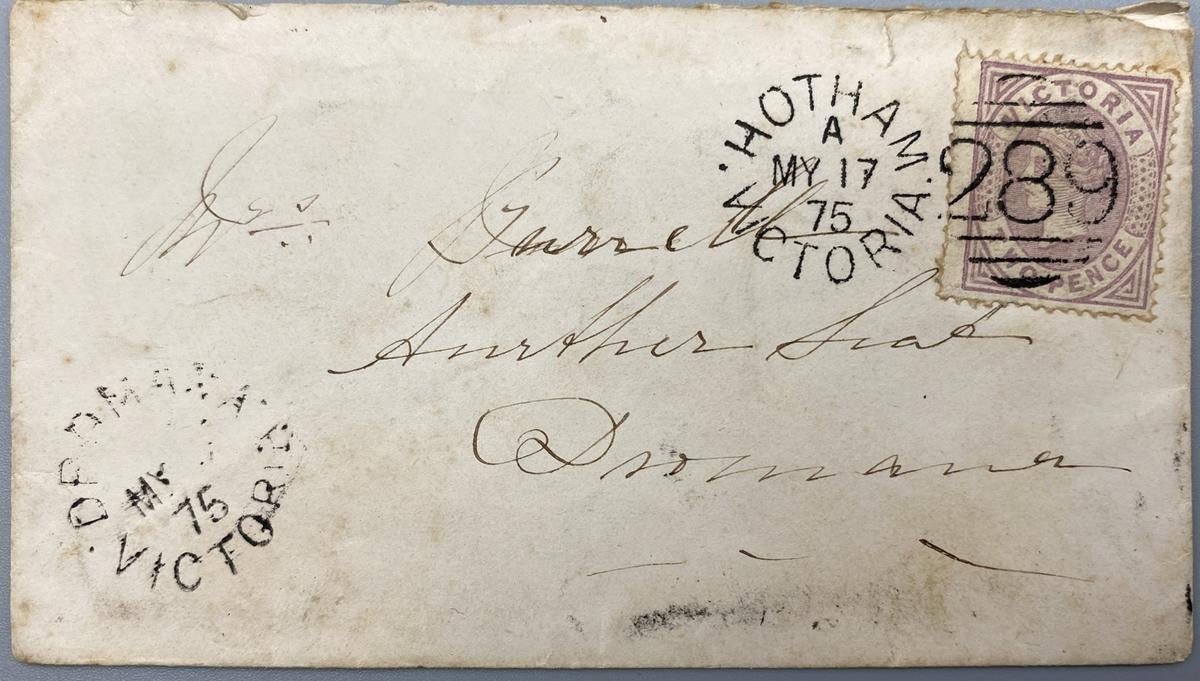 HOTHAM
A
MY 17
75
VICTORIA
VICTORIA
289
TWO PENCE
Mrs Burrell
Aurther Seat
Dromana
DROMANA
MY
75
VICTORIA